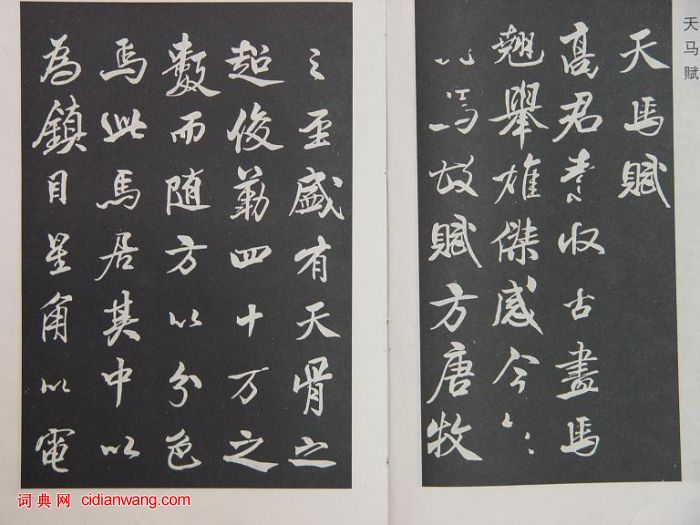 天马赋
天馬賦
高君素收古畫馬
翹舉雄傑感今
馬故賦方唐牧
之至盛有天骨之
超俊勒四十万之
數而随方以分色
焉此馬居其中以
為鎮目星角以電
词典网 cidianwang.com